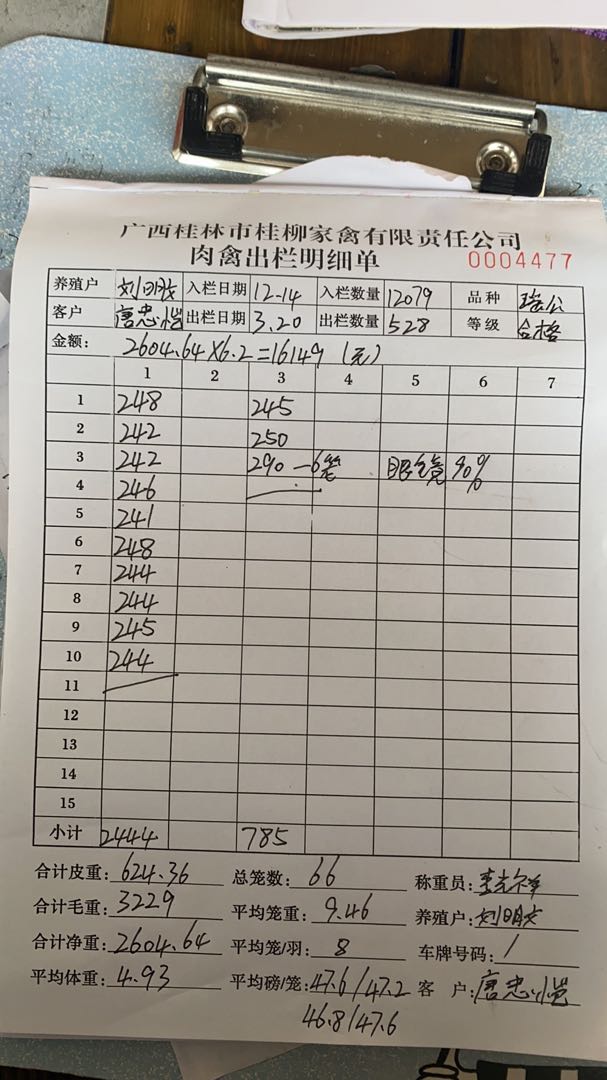 广西桂林市桂柳家禽有限责任公司
肉禽出栏明细单 0004477
养殖户 入栏日期 12-14 入栏数量 12079 品种 瑞公
客户 唐忠恺 出栏日期 3.20 出栏数量 528 等级 合格
金额: 2604.64X6.2=16149 (元)
1 2 3 4 5 6 7
1 248 245
2 242 250
3 242 290 -6笼 眼镜 90%
4 246
5 241
6 248
7 244
8 244
9 245
10 244
11
12
13
14
15
小计 2444 785
合计皮重: 624.36 总笼数: 66 称重员:
合计毛重: 3229 平均笼重: 9.46 养殖户:
合计净重: 2604.64 平均笼/羽: 8 车牌号码: /
平均体重: 4.93 平均磅/笼: 47.6/47.2 客户: 唐忠恺
46.8/47.6